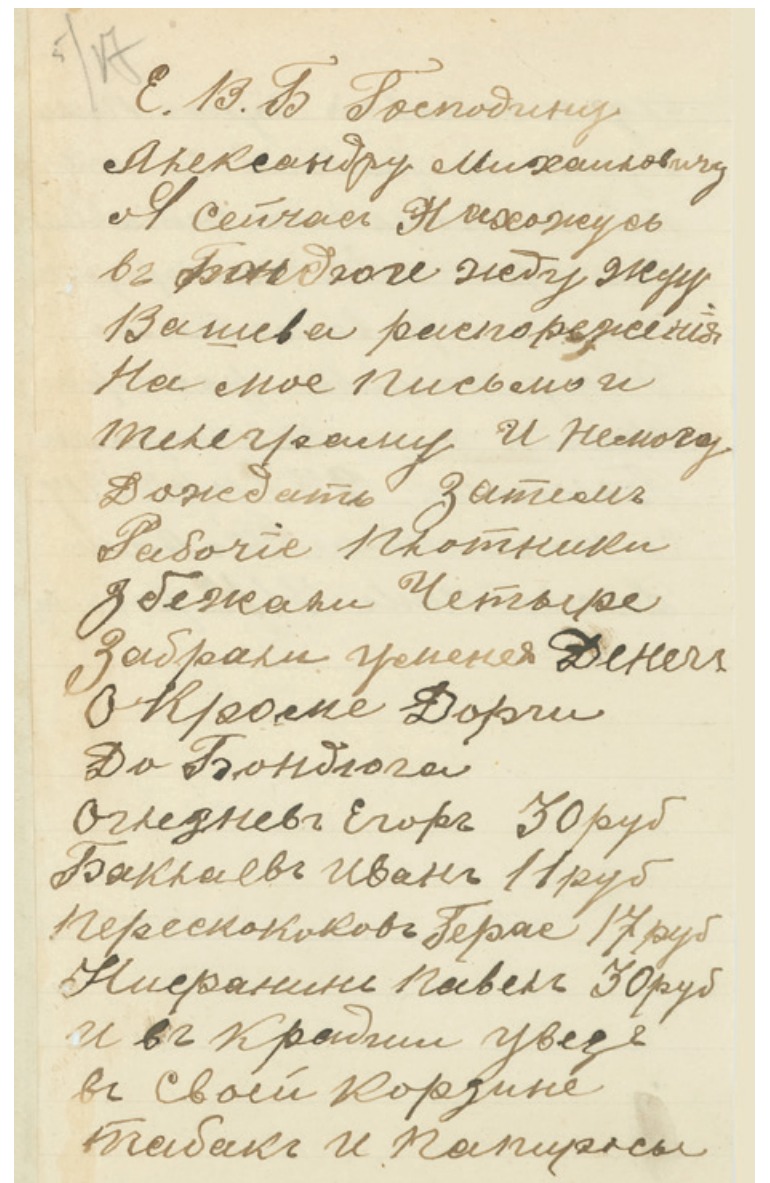 5/17
Е. В. Б Господину
Александру Михаиловичу
Я Сейчасъ Нахожусь
въ Бондюге жду жду
Вашева распорежения
На мое письмо и
телеграму И Немогу
Дождать Затемъ
Рабочіе плотники
Збежали Четыре
Забрали уменея Денегъ
О Кроме Дорги
До Бондюга
Огнедневъ Егоръ 30 руб
Баклаевъ Иванъ 11 руб
Перескоковъ Герас 17 руб
Павелъ 30 руб
И въ Крадчи увезъ
въ Своей Корзине
табакъ и папиросы